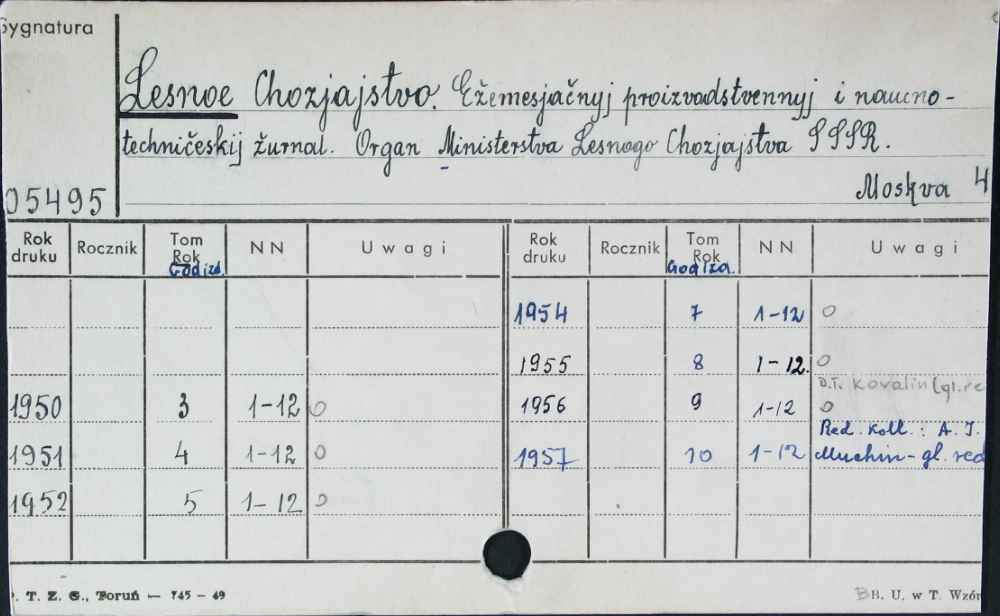 Sygnatura
Lesnoe Chozjajstvo. Ežemesjačnyj proizvodstvennyj i naučno-
techničeskij žurnal. Organ Ministerstva Lesnogo Chozjajstva SSSR.
05495
Moskva 4
Rok druku Rocznik Tom Rok NN Uwagi Rok druku Rocznik Tom Rok NN Uwagi
God izd. God iza.
1954 7 1-12 0
1955 8 1-12. 0
D.T. Kovalin (gl. re
1950 3 1-12 0 1956 9 1-12 0
Red. Koll.: A. I.
1951 4 1-12 0 1957 10 1-12 Muchin - gl. red
1952 5 1-12 0
. T. Z. G., Toruń — 745 - 49
BH. U. w T. Wzór